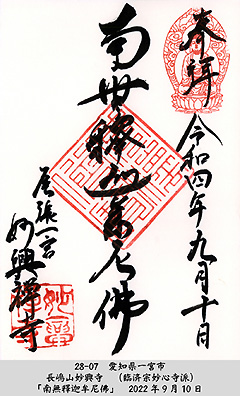 奉拝
令和四年九月十日
南無釋迦牟尼佛
尾張一宮
妙興禅寺
28-07　愛知県一宮市
長嶋山妙興寺　（臨済宗妙心寺派）
「南無釋迦牟尼佛」　2022年9月10日